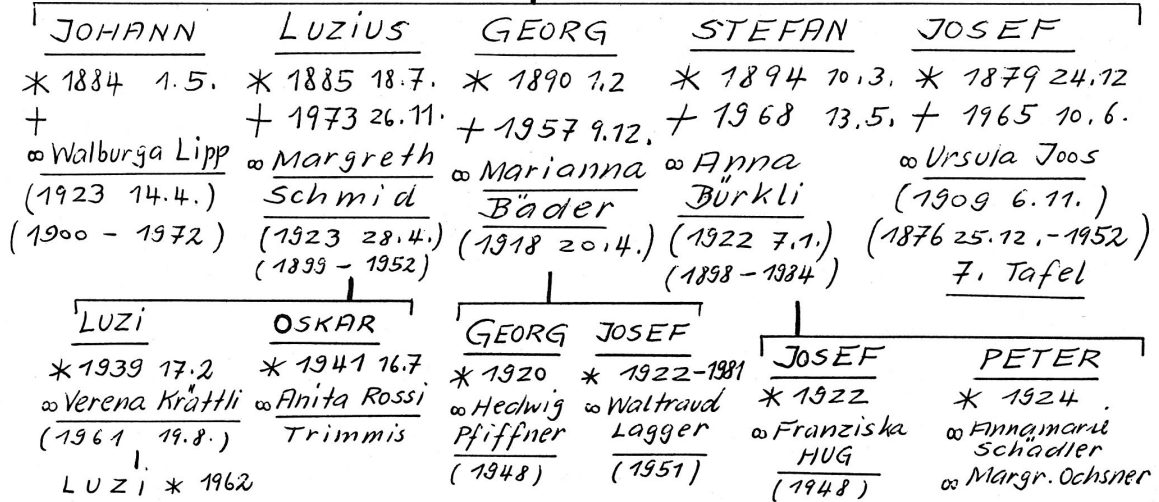 JOHANN
* 1884 1.5.
+
∞ Walburga Lipp
(1923 14.4.)
(1900 - 1972)
LUZIUS
* 1885 18.7.
+ 1973 26.11.
∞ Margreth
Schmid
(1923 28.4.)
(1899 - 1952)
GEORG
* 1890 1.2
+ 1957 9.12.
∞ Marianna
Bäder
(1918 20.4.)
STEFAN
* 1894 10.3.
+ 1968 13.5.
∞ Anna
Bürkli
(1922 7.1.)
(1898 - 1984)
JOSEF
* 1879 24.12
+ 1965 10.6.
∞ Ursula Joos
(1909 6.11.)
(1876 25.12. - 1952)
7. Tafel
LUZI
* 1939 17.2
∞ Verena Krättli
(1961 19.8.)
LUZI * 1962
OSKAR
* 1941 16.7
∞ Anita Rossi
Trimmis
GEORG
* 1920
∞ Hedwig
Pfiffner
(1948)
JOSEF
* 1922-1981
∞ Waltraud
Lagger
(1951)
JOSEF
* 1922
∞ Franziska
HUG
(1948)
PETER
* 1924.
∞ Annamarie
Schädler
∞ Margr. Ochsner